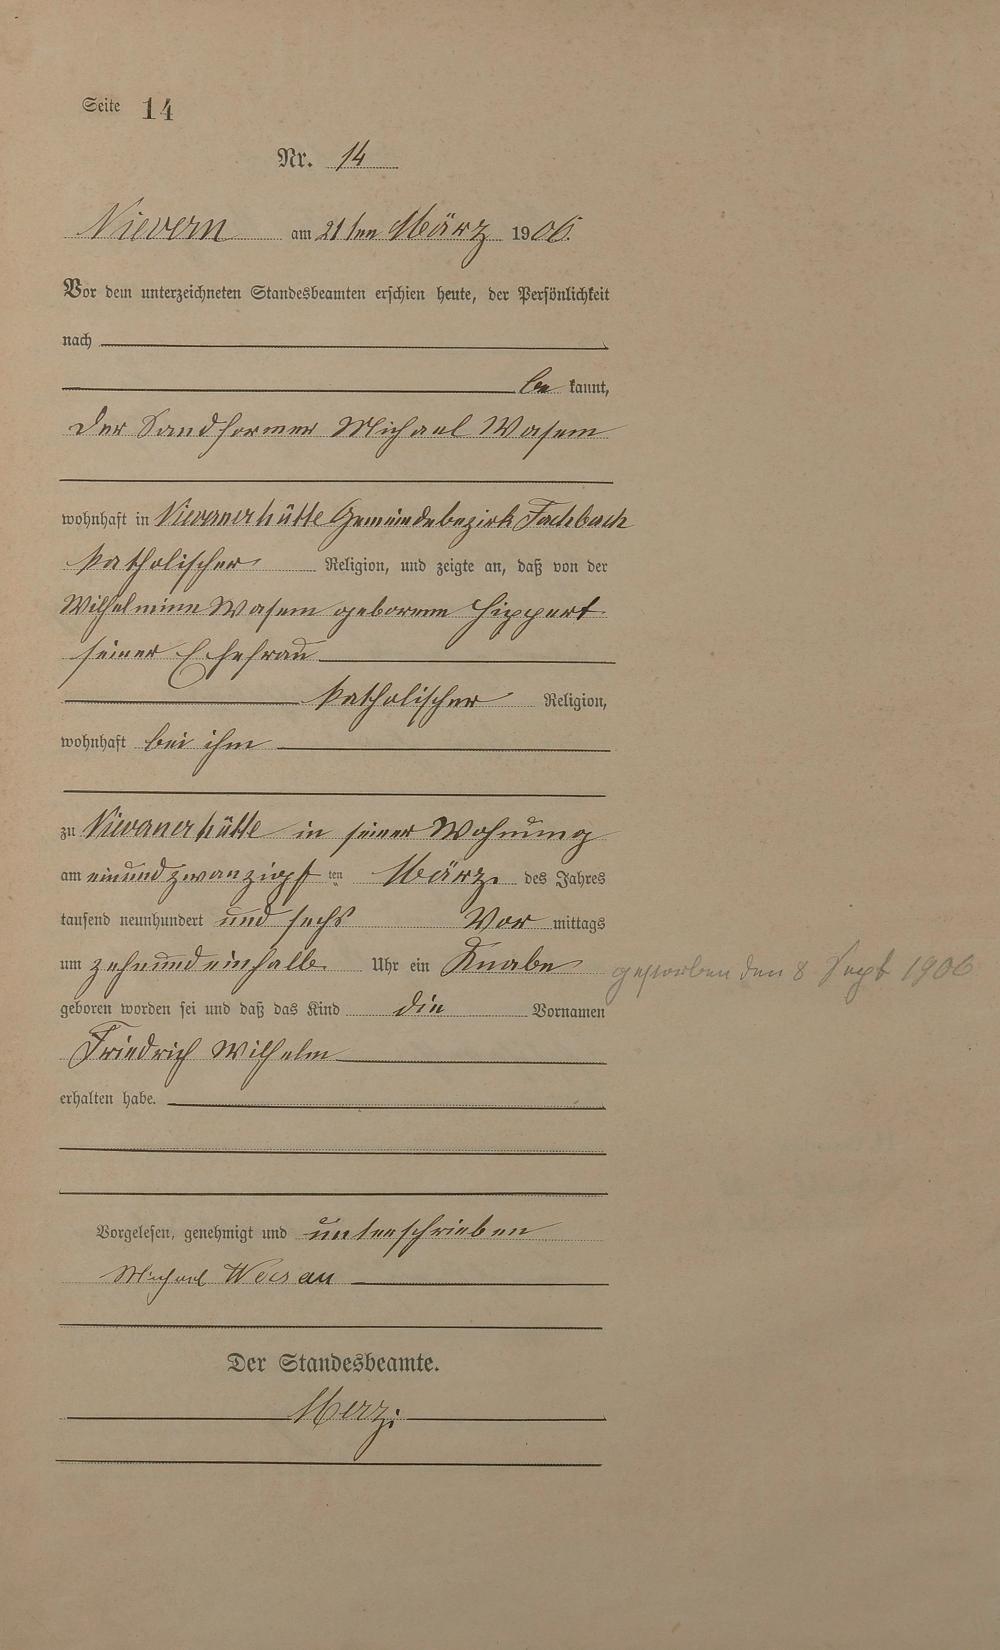 Seite 14
Nr. 14
Nievern am 21ten März 1906.
Vor dem unterzeichneten Standesbeamten erschien heute, der Persönlichkeit
nach
be kannt,
der Sandformer Michael Wasem
wohnhaft in Nievernerhütte Gemeindebezirk Fachbach
katholischer Religion, und zeigte an, daß von der
Wilhelmine Wasem geborene Hippert
seiner Ehefrau
katholischer Religion,
wohnhaft bei ihm
zu Nievernerhütte in seiner Wohnung
am einundzwanzigsten ten März des Jahres
tausend neunhundert und sechs Vor mittags
um zehnundeinhalb Uhr ein Knabe
gestorben den 8 Sept 1906
geboren worden sei und daß das Kind die Vornamen
Friedrich Wilhelm
erhalten habe.
Vorgelesen, genehmigt und unterschrieben
Michael
Der Standesbeamte.
Merz